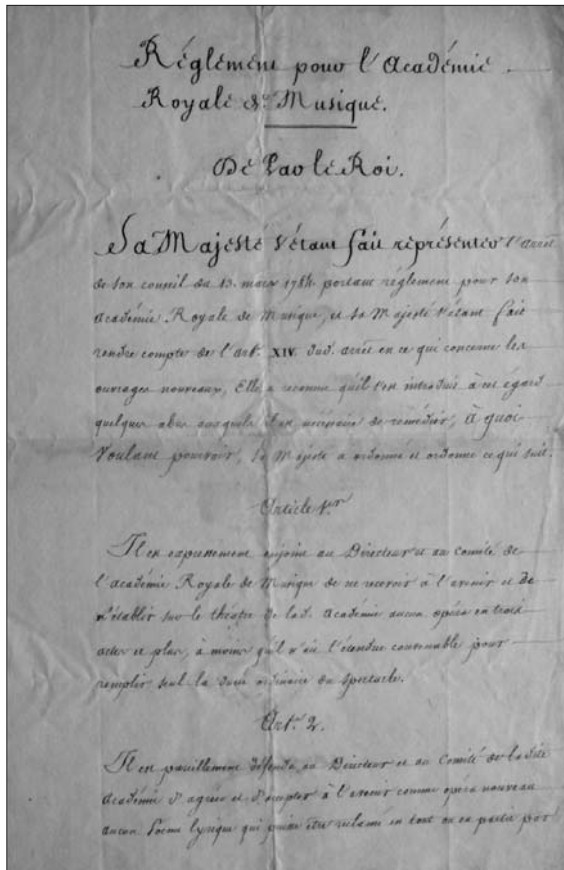 Réglement pour l'Académie
Royale de Musique.
De Par le Roi.
Sa Majesté s'étant fait représenter l'arrêt
de son conseil du 13. mars 1784. portant réglement pour son
académie Royale de Musique, et sa Majesté s'étant fait
rendre compte de l'art. XIV. dud. arrêt en ce qui concerne les
ouvrages nouveaux, Elle a reconnu qu'il s'en introduit à cet égard
quelques abus auxquels il est nécessaire de remédier, à quoi
voulant pourvoir, sa Majesté a ordonné et ordonne ce qui suit.
Article 1er
Il est expressement enjoint au Directeur et au comité de
l'académie Royale de Musique de ne recevoir à l'avenir et de
n'établir sur le théatre de lad. académie aucun opéra en trois
actes et plus, à moins qu'il n'ait l'étendue convenable pour
remplir seul la durée ordinaire du spectacle.
Art. 2.
Il est pareillement défendu au Directeur et au Comité de ladite
académie d'agréer et d'accepter à l'avenir comme opéra nouveau
aucun Poëme lyrique qui puisse être réclamé en tout ou en partie par